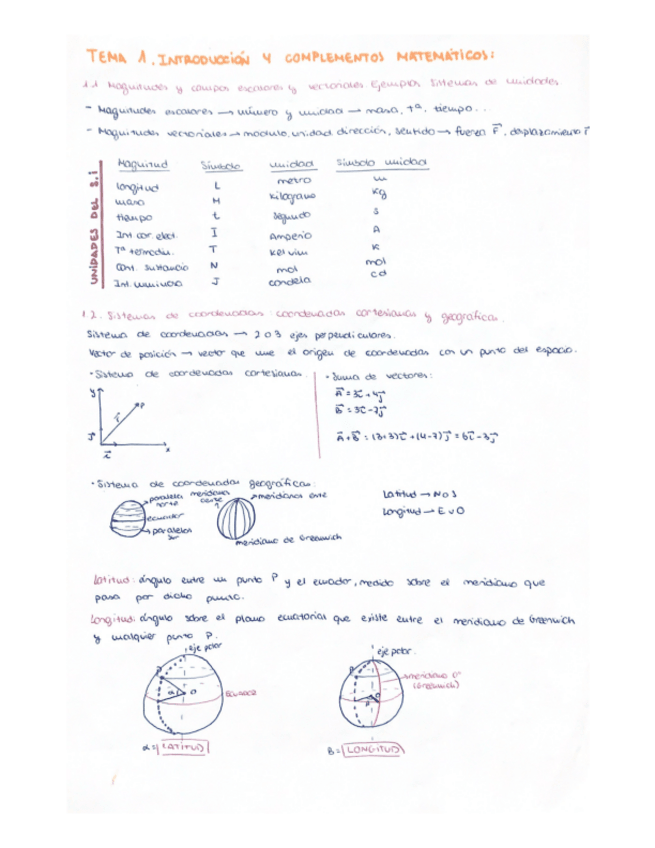 TEMA 1. INTRODUCCIÓN Y COMPLEMENTOS MATEMÁTICOS:
1.1 Magnitudes y campos escalares y vectoriales. Ejemplos. Sistemas de unidades
- Magnitudes escalares → número y unidad → masa, tª, tiempo...
- Magnitudes vectoriales → modulo, unidad, dirección, sentido → fuerza F, desplazamiento r
UNIDADES DEL S.I
Magnitud Símbolo unidad Símbolo unidad
longitud L metro m
masa M kilogramo kg
tiempo t segundo s
Int cor. elect. I Amperio A
Tª termodin. T Kelvin K
Cant. sustancia N mol mol
Int. luminosa J candela cd
1.2. Sistemas de coordenadas: coordenadas cartesianas y geográficas.
Sistema de coordenadas → 2 o 3 ejes perpendiculares.
Vector de posición → vector que une el origen de coordenadas con un punto del espacio.
· Sistema de coordenadas cartesianas.
y
P
r
j
i
x
· Suma de vectores:
A = 3i + 4j
B = 3i - 7j
A + B = (3+3)i + (4-7)j = 6i - 3j
· Sistema de coordenadas geográficas:
paralelos norte
ecuador
paralelos sur
meridianos oeste
meridianos este
meridiano de Greenwich
Latitud → N o S
Longitud → E u O
Latitud: ángulo entre un punto P y el ecuador, medido sobre el meridiano que
pasa por dicho punto.
Longitud: ángulo sobre el plano ecuatorial que existe entre el meridiano de Greenwich
y cualquier punto P.
eje polar
P
α
O
Ecuador
α = LATITUD
eje polar
P
meridiano 0º
(Greenwich)
B = LONGITUD